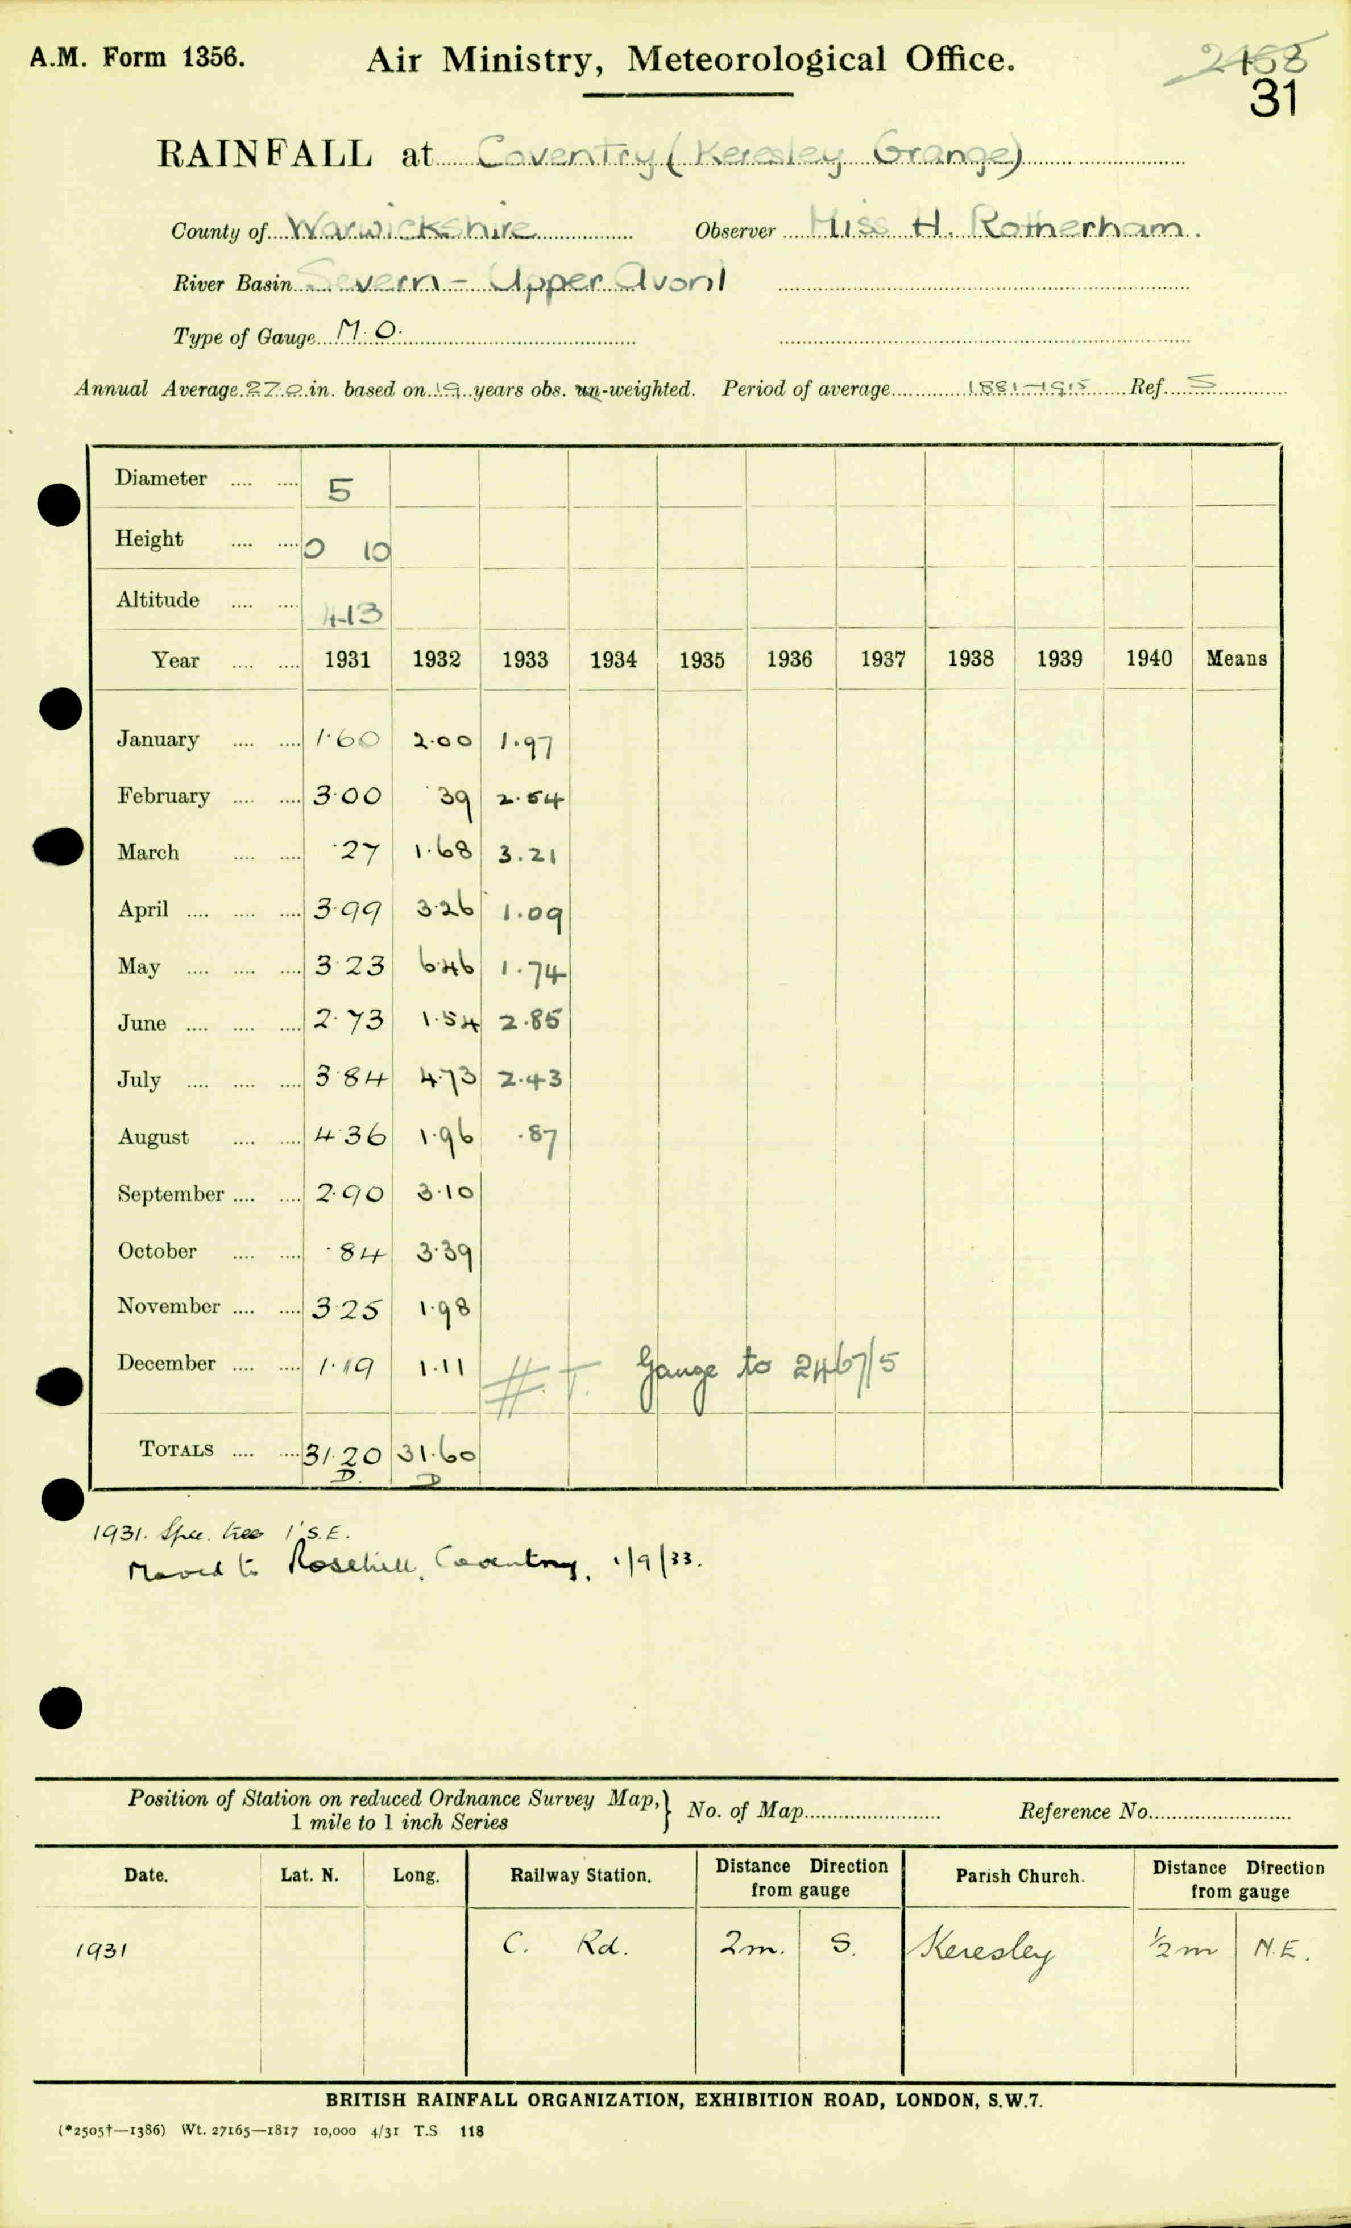 A.M. Form 1356. Air Ministry, Meteorological Office. 2468
31
RAINFALL at Coventry (Keresley Grange)
County of Warwickshire Observer Miss H. Rotherham.
River Basin Severn - Upper Avon
Type of Gauge M.O.
Annual Average 27.0 in. based on 19 years obs. un-weighted. Period of average 1881-1915 Ref. S
Diameter 5
Height 0 10
Altitude 413
Year 1931 1932 1933 1934 1935 1936 1937 1938 1939 1940 Means
January 1.60 2.00 1.97
February 3.00 .39 2.54
March .27 1.68 3.21
April 3.99 3.26 1.09
May 3.23 6.46 1.74
June 2.73 1.54 2.85
July 3.84 4.73 2.43
August 4.36 1.96 .87
September 2.90 3.10
October .84 3.39
November 3.25 1.98
December 1.19 1.11 Gauge to 2467/5
TOTALS 31.20 31.60
D. D
1931. tree 1' S.E.
Moved to Rosehill, Coventry, 1/9/33.
Position of Station on reduced Ordnance Survey Map, 1 mile to 1 inch Series } No. of Map Reference No.
Date. Lat. N. Long. Railway Station. Distance Direction from gauge Parish Church. Distance Direction from gauge
1931 C. Rd. 2m. S. Keresley ½m N.E.
BRITISH RAINFALL ORGANIZATION, EXHIBITION ROAD, LONDON, S.W.7.
(*2505†—1386) Wt. 27165—1817 10,000 4/31 T.S 118